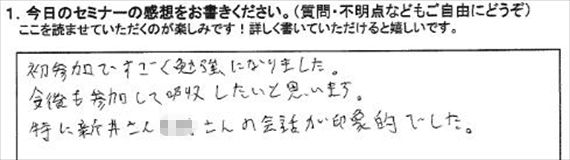 1. 今日のセミナーの感想をお書きください。(質問・不明点などもご自由にどうぞ)
ここを読ませていただくのが楽しみです！詳しく書いていただけると嬉しいです。
初参加ですごく勉強になりました。
今後も参加して吸収したいと思います。
特に新井さん さんの会話が印象的でした。